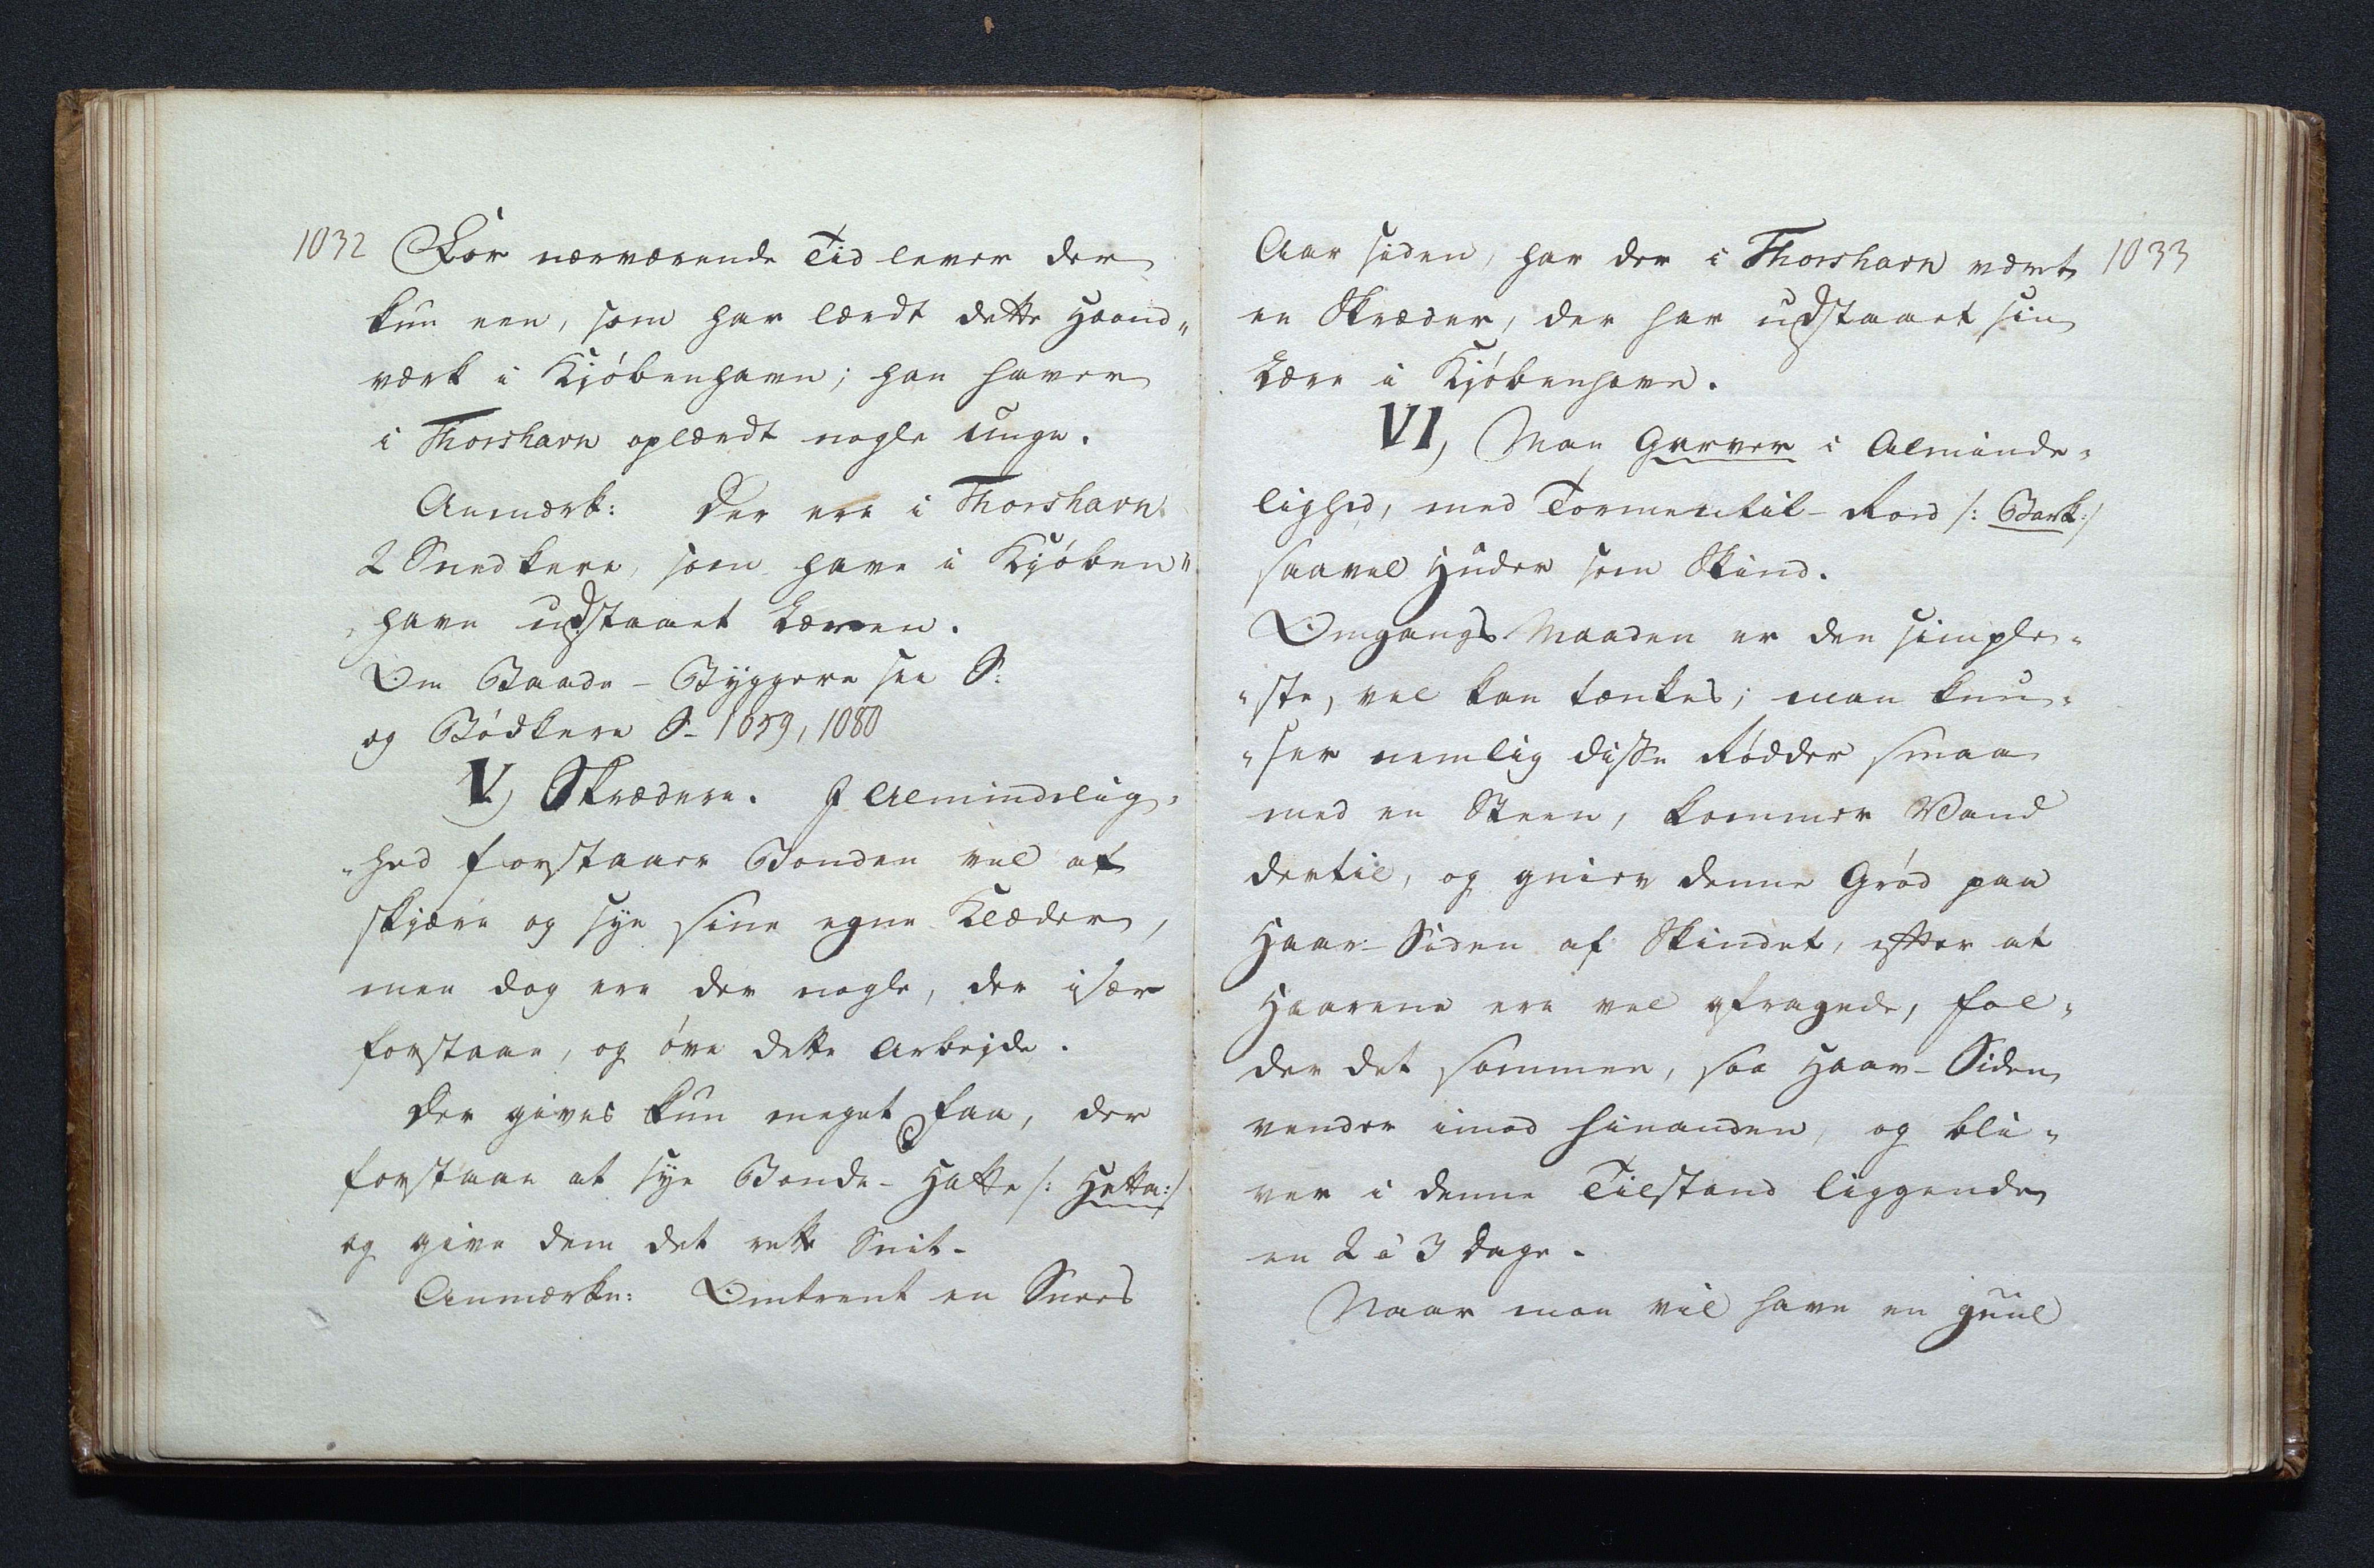 1032
For nærværende Tid lever der
kun een, som har lærdt dette Haand„
værk i Kjøbenhavn; han haver
i Thorshavn oplærdt nogle unge.
Anmærk: Der ere i Thorshavn
2 Snedkere, som have i Kjøben„
„havn udstaaet Læren.
Om Baade-Byggere see S:
og Bødkere S- 1059, 1080
V) Skrædere. I Almindelig„
„hed forstaaer Bonden vel at
skjære og sye sine egne Klæder,
men dog ere der nogle, der især
forstaae, og øve dette Arbejde.
Der gives kun meget faa, der
forstaae at sye Bonde-Hatte /: Hetta:/
og give dem det rette Snit-
Anmærkn: Omtrent en Snees
1033
Aar siden, har der i Thorshavn været
en Skræder, der har udstaaet sin
Lære i Kjøbenhavn.
VI) Man Garver i Alminde„
lighed, med Tormentil-Rod /: Bark:/
saavel Huder som Skind.
Omgangs Maaden er den simple„
„ste, vel kan tænkes; man knu„
„ser nemlig disse Rødder smaa
med en Steen, kommer Vand
dertil, og gnier denne Grød paa
Haar-Siden af Skindet, efter at
Haarene ere vel afragede, fol„
der det sammen, saa Haar-Siden
vender imod hinanden, og bli„
ver i denne Tilstand liggende
en 2 à 3 Dage.
Naar man vil have en guul